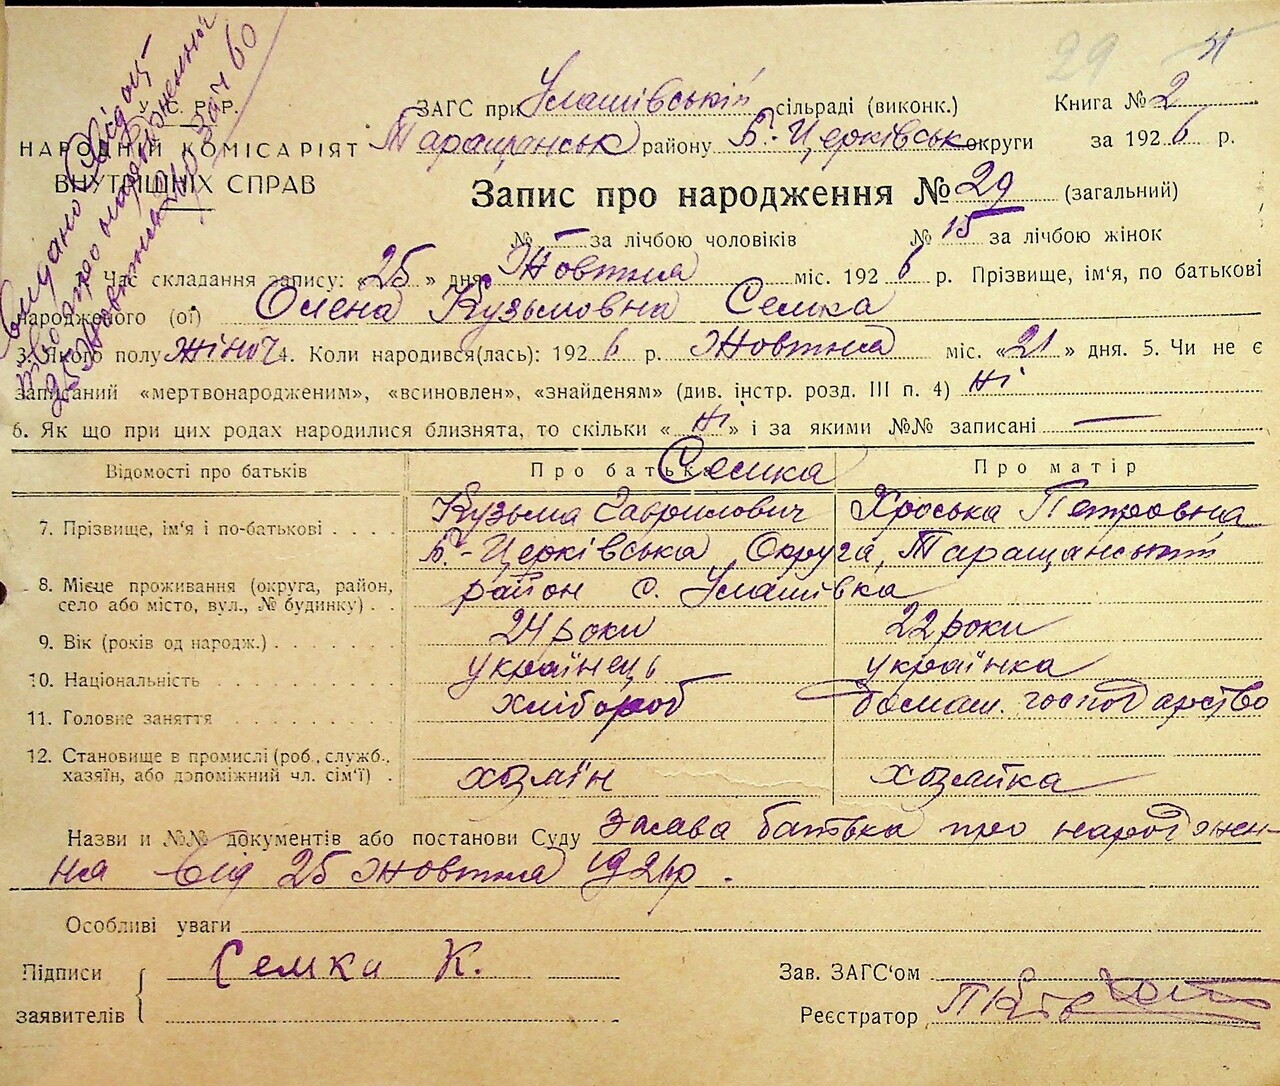 29
У.С.Р.Р.
НАРОДНІЙ КОМІСАРІЯТ
ВНУТРІШНІХ СПРАВ
Видано Відош
про народження
25 Жовтня
ЗАГС при Улашівській сільраді (виконк.) Книга № 2
Таращанськ району Б-Церківськ округи за 1926 р.
Запис про народження № 29 (загальний)
№ — за лічбою чоловіків № 15 за лічбою жінок
Час складання запису: «25» дня Жовтня міс. 1926 р. Прізвище, ім'я, по батькові
народженого (ої) Олена Кузьмовна Семка
3. Якого полу жіноч 4. Коли народився(лась): 1926 р. Жовтня міс. «21» дня. 5. Чи не є
записаний «мертвонародженим», «всиновлен», «знайденям» (див. інстр. розд. III п. 4) ні
6. Як що при цих родах народилися близнята, то скільки «ні» і за якими №№ записані —
Відомості про батьків Про батька Про матір
Семка
7. Прізвище, ім'я і по-батькові Кузьма Гаврилович Хроська Петровна
Б-Церківська Округа, Таращанський
8. Місце проживання (округа, район, село або місто, вул., № будинку) район с. Улашівка
9. Вік (років од народж.) 24 роки 22 роки
10. Національність українець українка
11. Головне заняття хлібороб домаш. господарство
12. Становище в промислі (роб., служб., хазяїн, або допоміжний чл. сім'ї) хозяїн хозяйка
Назви и №№ документів або постанови Суду Заява батька про народжен-
ня від 25 Жовтня 1926р.
Особливі уваги
Підписи заявителів Семка К.
Зав. ЗАГС'ом
Реєстратор